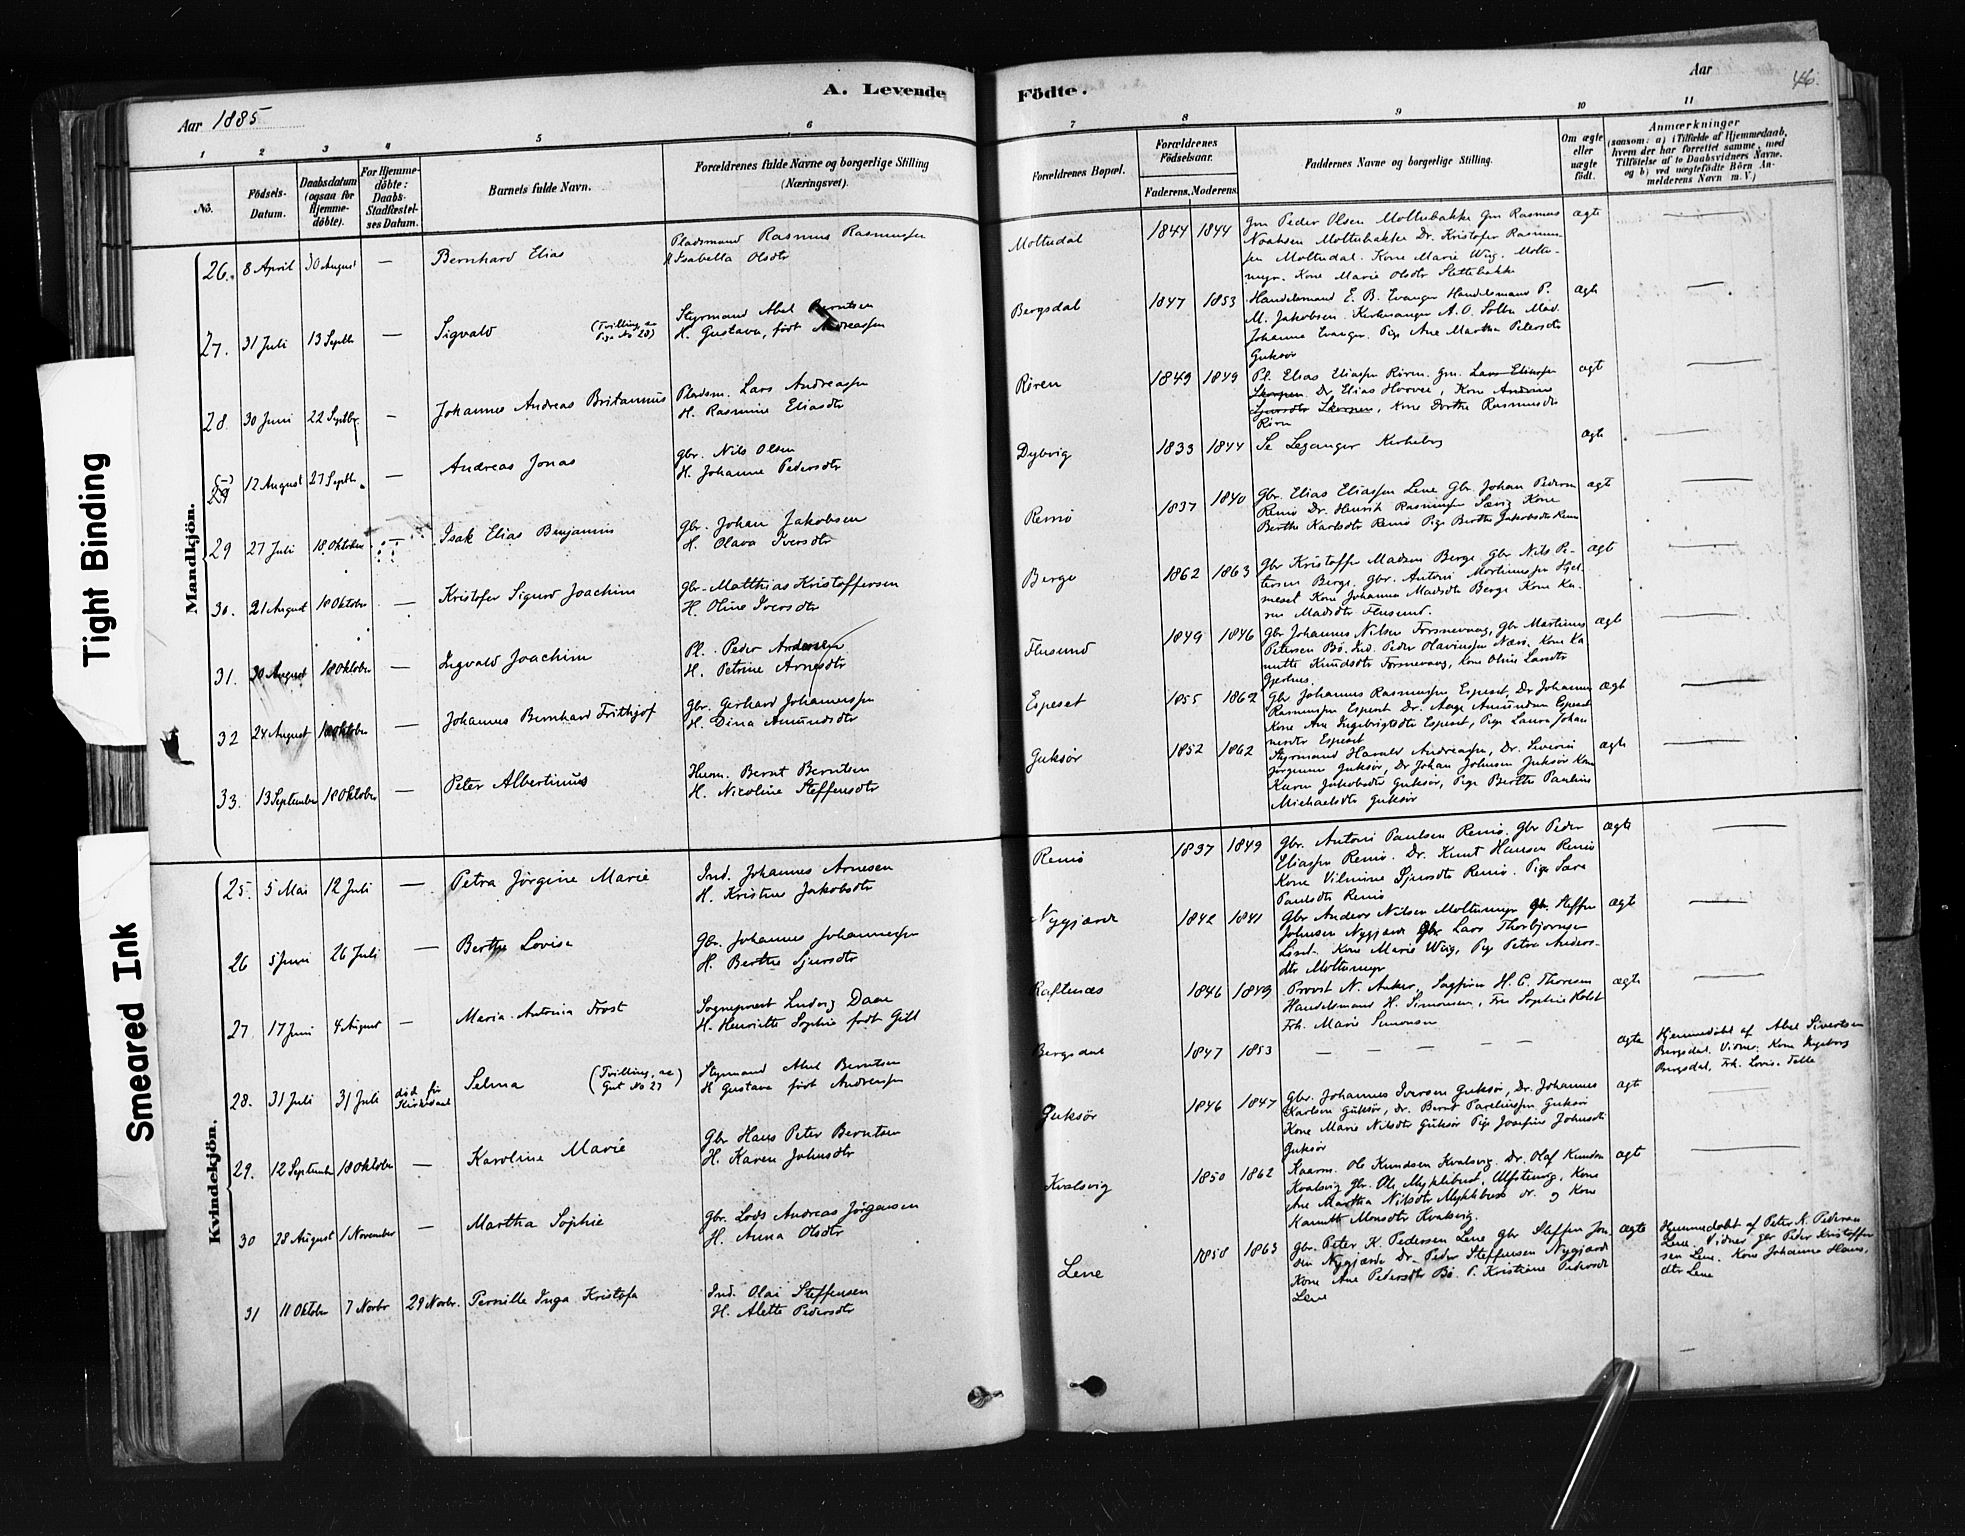 A. Levende
Födte.
Aar 1885
Aar
46.
1 2 3 4 5 6 7 8 9 10 11
No.
Födsels-
Datum.
Daabsdatum
(ogsaa for
Hjemme-
döbte).
For Hjemme-
döbte:
Daabs-
Stadfæstel-
ses Datum.
Barnets fulde Navn.
Forældrenes fulde Navne og borgerlige Stilling
(Næringsvei).
Forældrenes Bopæl.
Forældrenes
Födselsaar.
Faderens.
Moderens.
Faddernes Navne og borgerlige Stilling.
Om ægte
eller
uægte
født.
Anmærkninger
(saasom: a) i Tilfælde af Hjemmedaab,
hvem der har forrettet samme, med
Tilföielse af to Daabsvidners Navne.
og b) ved uægtefödte Börn An-
melderens Navn m. V.)
Tight Binding
Smeared Ink
Mandkjön.
26. 8 April 30 August — Bernhard Elias
Pladsmand Rasmus Rasmussen
H Isabella Olsdtr
Moltudal 1844 1844
Gm Peder Olsen Moltubakke Gm Rasmus
Noahsen Moltubakke Dr. Kristofer Rasmus
sen Moltudal. Kone Marie Wiig. Moltu-
myr. Kone Marie Olsdtr Slettebakke
ægte —
27. 31 Juli 13 Septbr — Sigvald
(Tvilling, se
Pige No 28)
Styrmand Abel Berntsen
H. Gustava, født Andreassen
Bergsdal 1847 1853
Handelsmand E. B. Evanger Handelsmand P.
M. Jakobsen. Kirkesanger A. O. Solbu Mad.
Johanne Evanger. Pige Ane Martha Petersdtr
Guksør
ægte —
28. 30 Juni 22 Septbr — Johannes Andreas Britannus
Pladsm. Lars Andreassen
H. Rasmine Eliasdtr
Rören 1849 1849
Pl. Elias Eliassen Rören. Gm. Lars Eliassen
Skorpen Dr Elias Horvei, Kone Andrine
Sjursdtr Skorpen, Kone Dorthe Rasmusdtr
Rören
ægt —
29 12 August 27 Septbr — Andreas Jonas
Gbr. Nils Olsen
H. Johanne Pedersdtr
Dybvig 1833 1844 Se Leganger Kirkebog ægte —
29 27 Juli 18 Oktober — Isak Elias Benjamin
Gbr. Johan Jakobsen
H. Olava Iversdtr
Remö 1837 1840
Gbr. Elias Eliassen Lene Gbr. Johan Pedersen
Remö Dr. Henrik Rasmussen Sævig Kone
Berthe Karlsdtr Remö Pige Berthe Jakobsdtr Remö
ægt —
30. 21 August 18 Oktober — Kristofer Sigurd Joachim
Gbr. Matthias Kristoffersen
H. Oline Iversdtr
Berge 1862 1863
Gbr Kristoffer Madsen Berge Gbr Nils Pe-
tersen Berge. Gbr. Antoni Martinussen Hjel-
meset Kone Johanna Madsdtr Berge Kone Ka-
ren Madsdtr Flusund.
ægt —
31. 30 August 18 Oktober — Ingvald Joachim
Pl. Peder Andersen
H. Petrine Arnesdtr
Flusund 1849 1846
Gbr Johannes Nilsen Forsnevaag, Gbr Martinus
Petersen Bö. Ind. Peder Olavinssen Nærö. Kone Ka
nutte Knudsdtr Forsnevaag, Kone Oline Larsdtr
Gjerdnes.
ægte —
32 24 August 18 Oktober — Johannes Bernhard Frithjof
Gbr. Gerhard Johannessen
H. Dina Amundsdtr
Espeset 1855 1862
Gbr Johannes Rasmussen, Espeset, Dr Johannes
Rasmussen Espeset Dr. Aage Amundsen Espeset
Kone Ane Ingebrigtsdtr Espeset, Pige Laura Johan
nesdtr Espeset
ægt —
33. 13 September 18 Oktober — Peter Albertinus
Husm. Bernt Berntsen
H. Nicoline Steffensdtr
Guksør 1852 1862
Styrmand Harald Andreassen, Dr. Severin
Jörgensen Guksør, Dr Johan Johnsen Guksør Kone
Karen Jakobsdtr Guksør, Pige Berthe Pauline
Michaelsdtr Guksør
ægte —
Kvindekjön.
25. 5 Mai 12 Juli — Petra Jörgine Marie
Ind. Johannes Arnesen
H. Kristine Jakobsdtr
Remö 1837 1849
Gbr. Antoni Paulsen Remö. Gbr Peder
Eliassen Remö. Dr. Knut Hansen Remö
Kone Vilmine Sjursdtr Remö. Pige Sara
Paulsdtr Remö
ægte —
26 5 Juni 26 Juli — Berthe Lovise
Gbr. Johannes Johannessen
H. Berthe Sjursdtr
Nygjærde 1842 1841
Gbr Anders Nilsen Moltumyr Gbr. Steffen
Johnsen Nygjærde Gbr Lars Thorbjörnsen
Kone Marie Wiig, Pige Petra Anders-
dtr Moltumyr
ægt —
27. 17 Juni 4 August — Maria Antonia Frost
Sogneprest Ludvig Daae
H. Henriette Sophie født Gill
Raftenæs 1846 1849
Provst N. Anker, Sagfører H. C. Thoresen
Handelsmand H. Simonsen, Fru Sophie Holst
Frk. Marie Simonsen
ægte —
28. 31 Juli 31 Juli
død før
Selma
(Tvilling, se
Gut No 27)
Styrmand Abel Berntsen
H Gustava født Andreassen
Bergsdal 1847 1853 — — — — — ægte
Hjemmedøbt af Abel Sivertsen
Bergsdal. Vidner. Kone Ingeborg
Bergsdal, Frk. Lovise Falle
29. 12 September 18 Oktober — Karoline Marie
Gbr Hans Peter Berntsen
H. Karen Johnsdtr
Guksør 1846 1847
Gbr. Johannes Iversen Guksør, Dr. Johannes
Karlsen Guksør, Dr. Bernt Pareliussen Guksør
Kone Marie Nilsdtr Guksør Pige Josefine Johnsdtr
Guksør
ægt —
30 28 August 1 November — Martha Sophie
Gbr. Lods Andreas Jörgensen
H. Anna Olsdtr
Kvalsvig 1850 1862
Kaarm. Ole Knudsen Kvalsvig. Dr. Olaf Knudsen
Kvalsvig Gbr. Ole Myklebust, Ulfstenvig, Kone
Ane Martha Nilsdtr Myklebust dr. og Kone
Kanutte Monsdtr Kvalsvig.
ægt —
31 11 Oktober 7 Novbr 29 Novbr. Pernille Inga Kristofa
Ind. Olai Steffensen
H. Alette Pedersdtr
Lene 1858 1863
Gbr. Peter K. Pedersen Lene Gbr Steffen Jon
sen Nygjærde Dr. Peder Steffensen Nygjærde
Kone Ane Pedersdtr Bö. P. Kristiane Pedersdtr
Lene
ægte
Hjemmedøbt af Peter K. Pedersen
Lene. Vidner Gbr Peder Kristoffer
sen Lene. Kone Johanna Hans,
dtr Lene